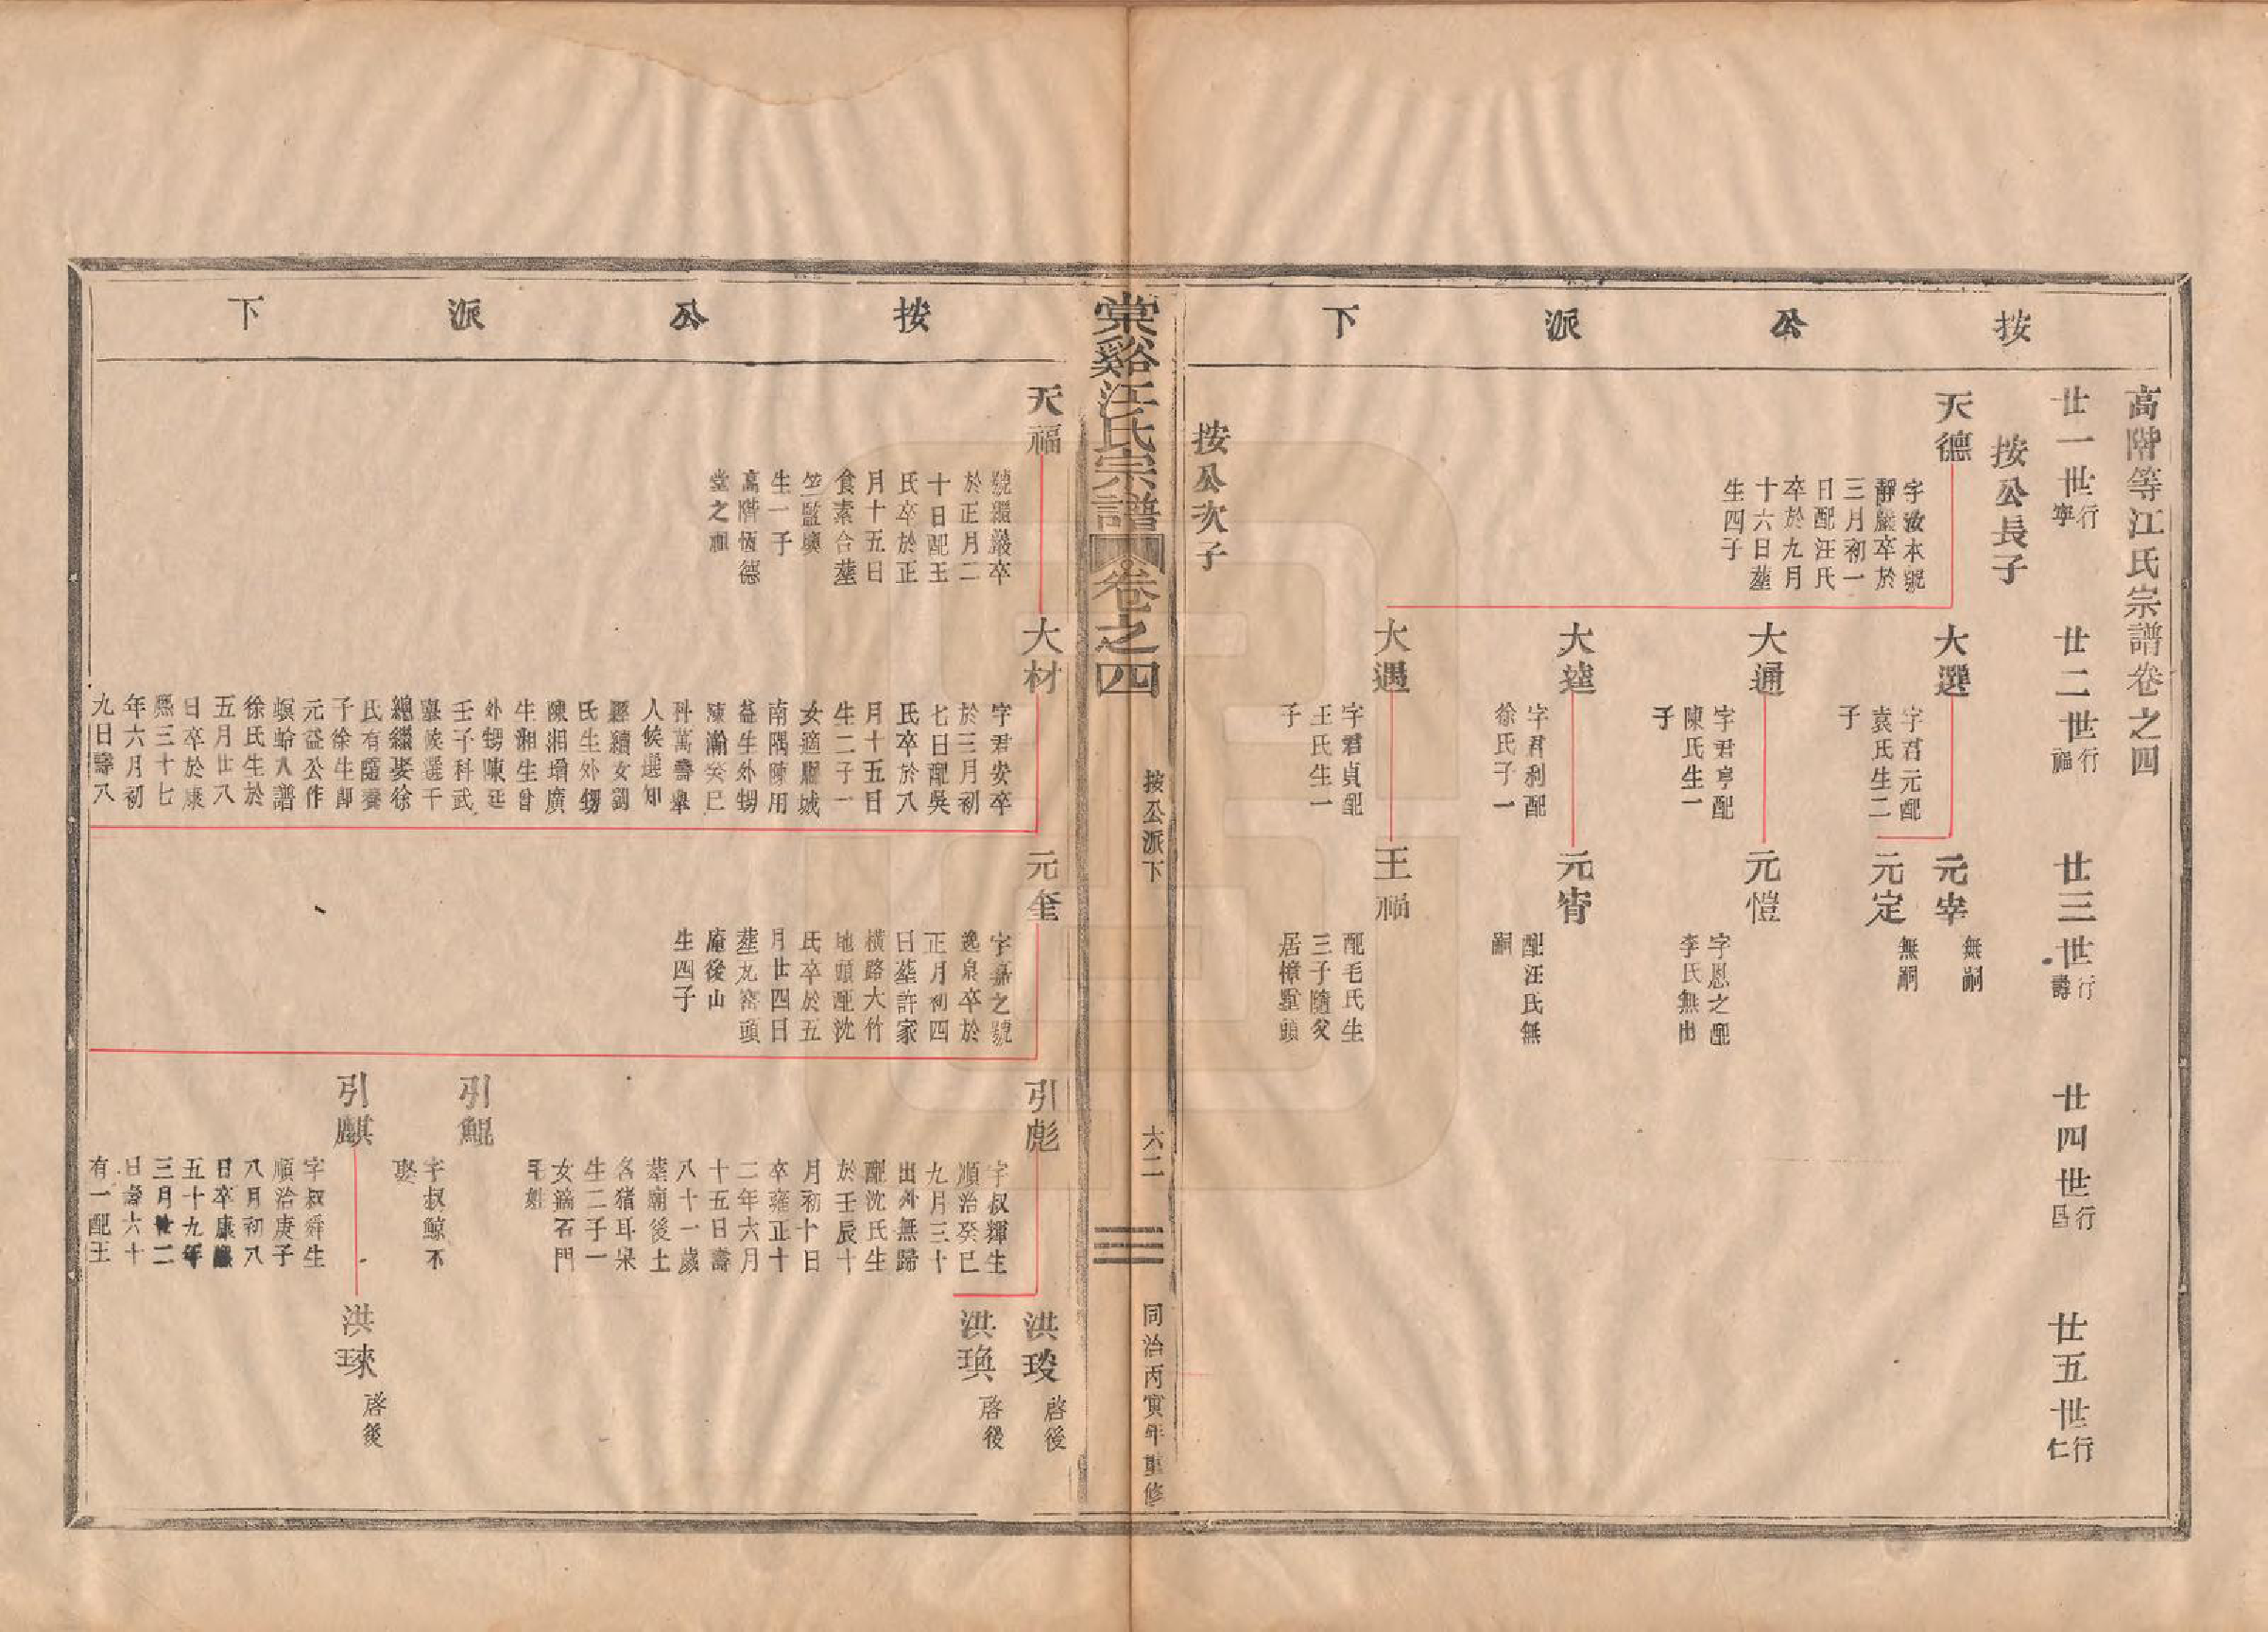 高階等江氏宗譜卷之四
按公派下
廿一世行寧
廿二世行福
廿三世行壽
廿四世行昌
廿五世行仁
按公長子
天德
字汝本號
靜嚴卒於
三月初一
日配汪氏
卒於九月
十六日塟
生四子
大選
字君元配
袁氏生二
子
元宰
無嗣
元定
無嗣
大通
字君亨配
陳氏生一
子
元愷
字恩之配
李氏無出
大逵
字君利配
徐氏子一
元宵
配汪氏無
嗣
大遇
字君貞配
王氏生一
子
王福
配毛氏生
三子隨父
居樟
按公次子
棠谿江氏宗譜
卷之四
按公派下
六二
同治丙寅年重修
按公派下
天福
號繼巖卒
於正月二
十日配王
氏卒於正
月十五日
食素合塟
竺監墺
生一子
高階恆德
堂之祖
大材
字君安卒
於三月初
七日配吳
氏卒於八
月十五日
生二子一
女適郡城
南隅陳用
益生外甥
陳瀚癸巳
科萬壽舉
人候選知
縣續女劉
氏生外甥
陳湘增廣
生湘生曾
外甥陳廷
壬子科武
舉候選千
總繼娶徐
氏有隨養
子徐生郎
元益公作
螟蛉入譜
徐氏生於
五月廿八
日卒於康
熙三十七
年六月初
九日壽八
元奎
字嘉之號
逸泉卒於
正月初四
日塟許家
橫路大竹
地頭配沈
氏卒於五
月廿四日
塟瓦窑頭
庵後山
生四子
引彪
字叔輝生
順治癸巳
九月三十
出外無歸
配沈氏生
於壬辰十
月初十日
卒雍正十
二年六月
十五日壽
八十一歲
塟廟後土
名猪耳杲
生二子一
女適石門
毛姓
洪玫
啓後
洪瑍
啓後
引鯤
字叔鯨不
娶
引麒
字叔舜生
順治庚子
八月初八
日卒康熙
五十九年
三月廿二
日壽六十
有一配王
洪琜
啓後